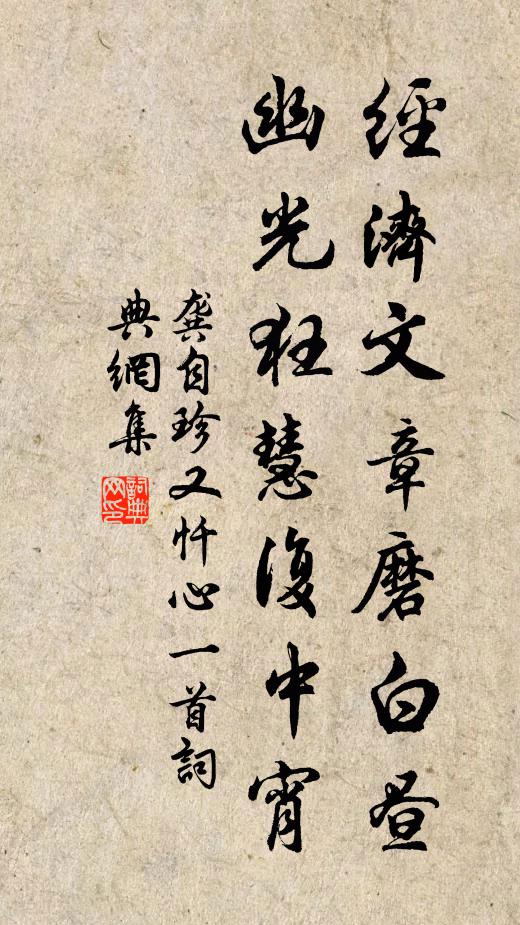 經濟文章磨白晝
幽光狂慧復中宵
龔自珍又忏心一首詞
典網集
詞典網印